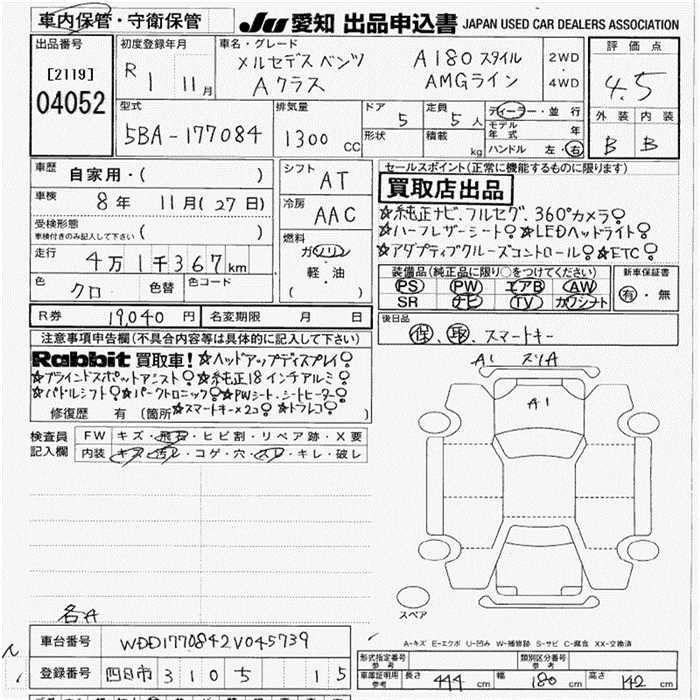 車内保管・守衛保管
JU 愛知 出品申込書 JAPAN USED CAR DEALERS ASSOCIATION
出品番号
[2119]
04052
初度登録年月
R 1 11月
車名・グレード
メルセデス ベンツ A180 スタイル
Aクラス AMGライン
2WD
・
4WD
評価点
4.5
外装 内装
B B
型式
5BA-177084
排気量
1300 CC
ドア 5
形状
定員 5人
積載 kg
ディーラー・並行
モデル年式 年
ハンドル 左・右
車歴 自家用・( )
車検 8年 11月(27日)
受検形態
車検付きのみ記入して下さい ( )
走行 4万1千367km
色 クロ 色替 色コード
シフト AT
冷房 AAC
燃料
ガソリン
軽・油
( )
R券 19,040円 名変期限 月 日
セールスポイント(正常に機能するものに限ります)
買取店出品
☆純正ナビ、フルセグ、360°カメラ♀
☆ハーフレザーシート♀☆LEDヘッドライト♀
☆アダプティブクルーズコントロール♀☆ETC♀
装備品(純正品に限り○をつけてください)
PS PW エアB AW
SR ナビ TV カワシート
新車保証書
有・無
後日品
保、取、スマートキー
注意事項申告欄(不具合内容等は具体的に記入して下さい)
Rabbit 買取車!☆ヘッドアップディスプレイ♀
☆ブラインドスポットアシスト♀☆純正18インチアルミ♀
☆パドルシフト♀☆パークトロニック♀☆PWシート、シートヒーター♀
修復歴 有 (箇所☆スマートキー×2コ♀☆ドラレコ♀)
検査員記入欄
FW キズ・飛石・ヒビ割・リペア跡・X要
内装 キズ・汚レ・コゲ・穴・スレ・キレ・破レ
A1
A1
スペア
A-キズ E-エクボ U-凹み W-補修跡 S-サビ C-腐食 XX-交換済
車台番号 WDD1770842V045739
登録番号 四日市 310 5 15
形式指定番号 参考
類別区分番号 参考
車庫証明用 参考 長さ 444 cm 幅 180 cm 高さ 142 cm